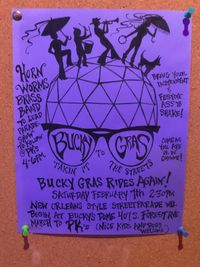 HORN
WORMS
BRASS
BAND
TO LEAD
PARADE
SHOW
TO FOLLOW
@ PK's
4-6PM
BRING YOUR
INSTRUMENT
&
FESTIVE
ASS TO
SHAKE!
COME AS
YOU ARE
OR IN
COSTUME!
BUCKY GRAS
TAKIN' IT TO THE STREETS
BUCKY GRAS RIDES AGAIN!
SATURDAY FEBRUARY 7TH 2:30PM
NEW ORLEANS STYLE STREET PARADE WILL
BEGIN AT BUCKY'S DOME
MARCH TO PK's (NICE KIDS AND DOGS
WELCOME)